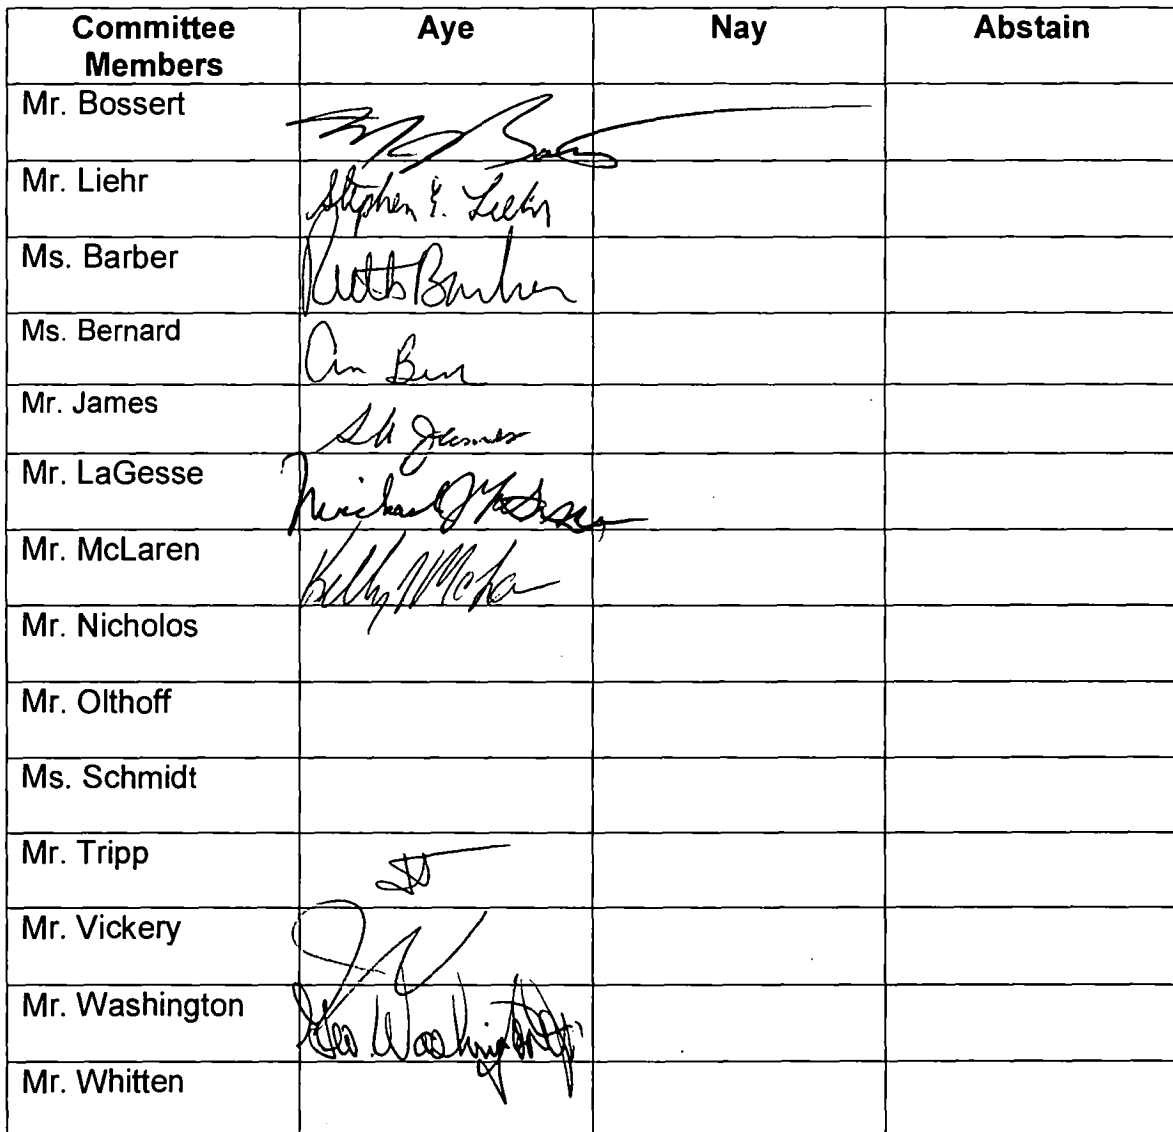 Committee Members Aye Nay Abstain
Mr. Bossert
Mr. Liehr Stephen E. Liehr
Ms. Barber Ruth Barber
Ms. Bernard
Mr. James James
Mr. LaGesse Michael J LaGesse
Mr. McLaren Kelly McLa
Mr. Nicholos
Mr. Olthoff
Ms. Schmidt
Mr. Tripp
Mr. Vickery
Mr. Washington Geo Washington Jr
Mr. Whitten